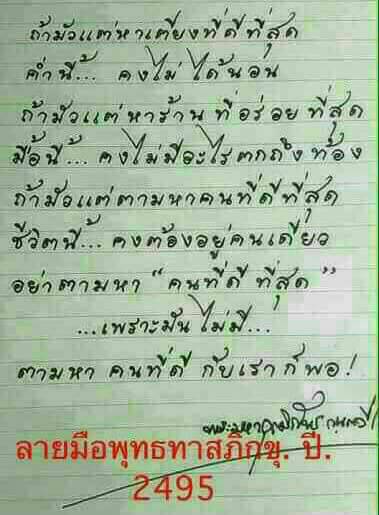 ถ้ามัวแต่หาเตียงที่ดีที่สุด
ค่ำนี้... คงไม่ได้นอน
ถ้ามัวแต่หาร้านที่อร่อยที่สุด
มื้อนี้... คงไม่มีอะไรตกถึงท้อง
ถ้ามัวแต่ตามหาคนที่ดีที่สุด
ชีวิตนี้... คงต้องอยู่คนเดียว
อย่าตามหา "คนที่ดีที่สุด"
...เพราะมันไม่มี...
ตามหา คนที่ดี กับเราก็พอ!
พระมหา
ลายมือพุทธทาสภิกขุ. ปี.
2495